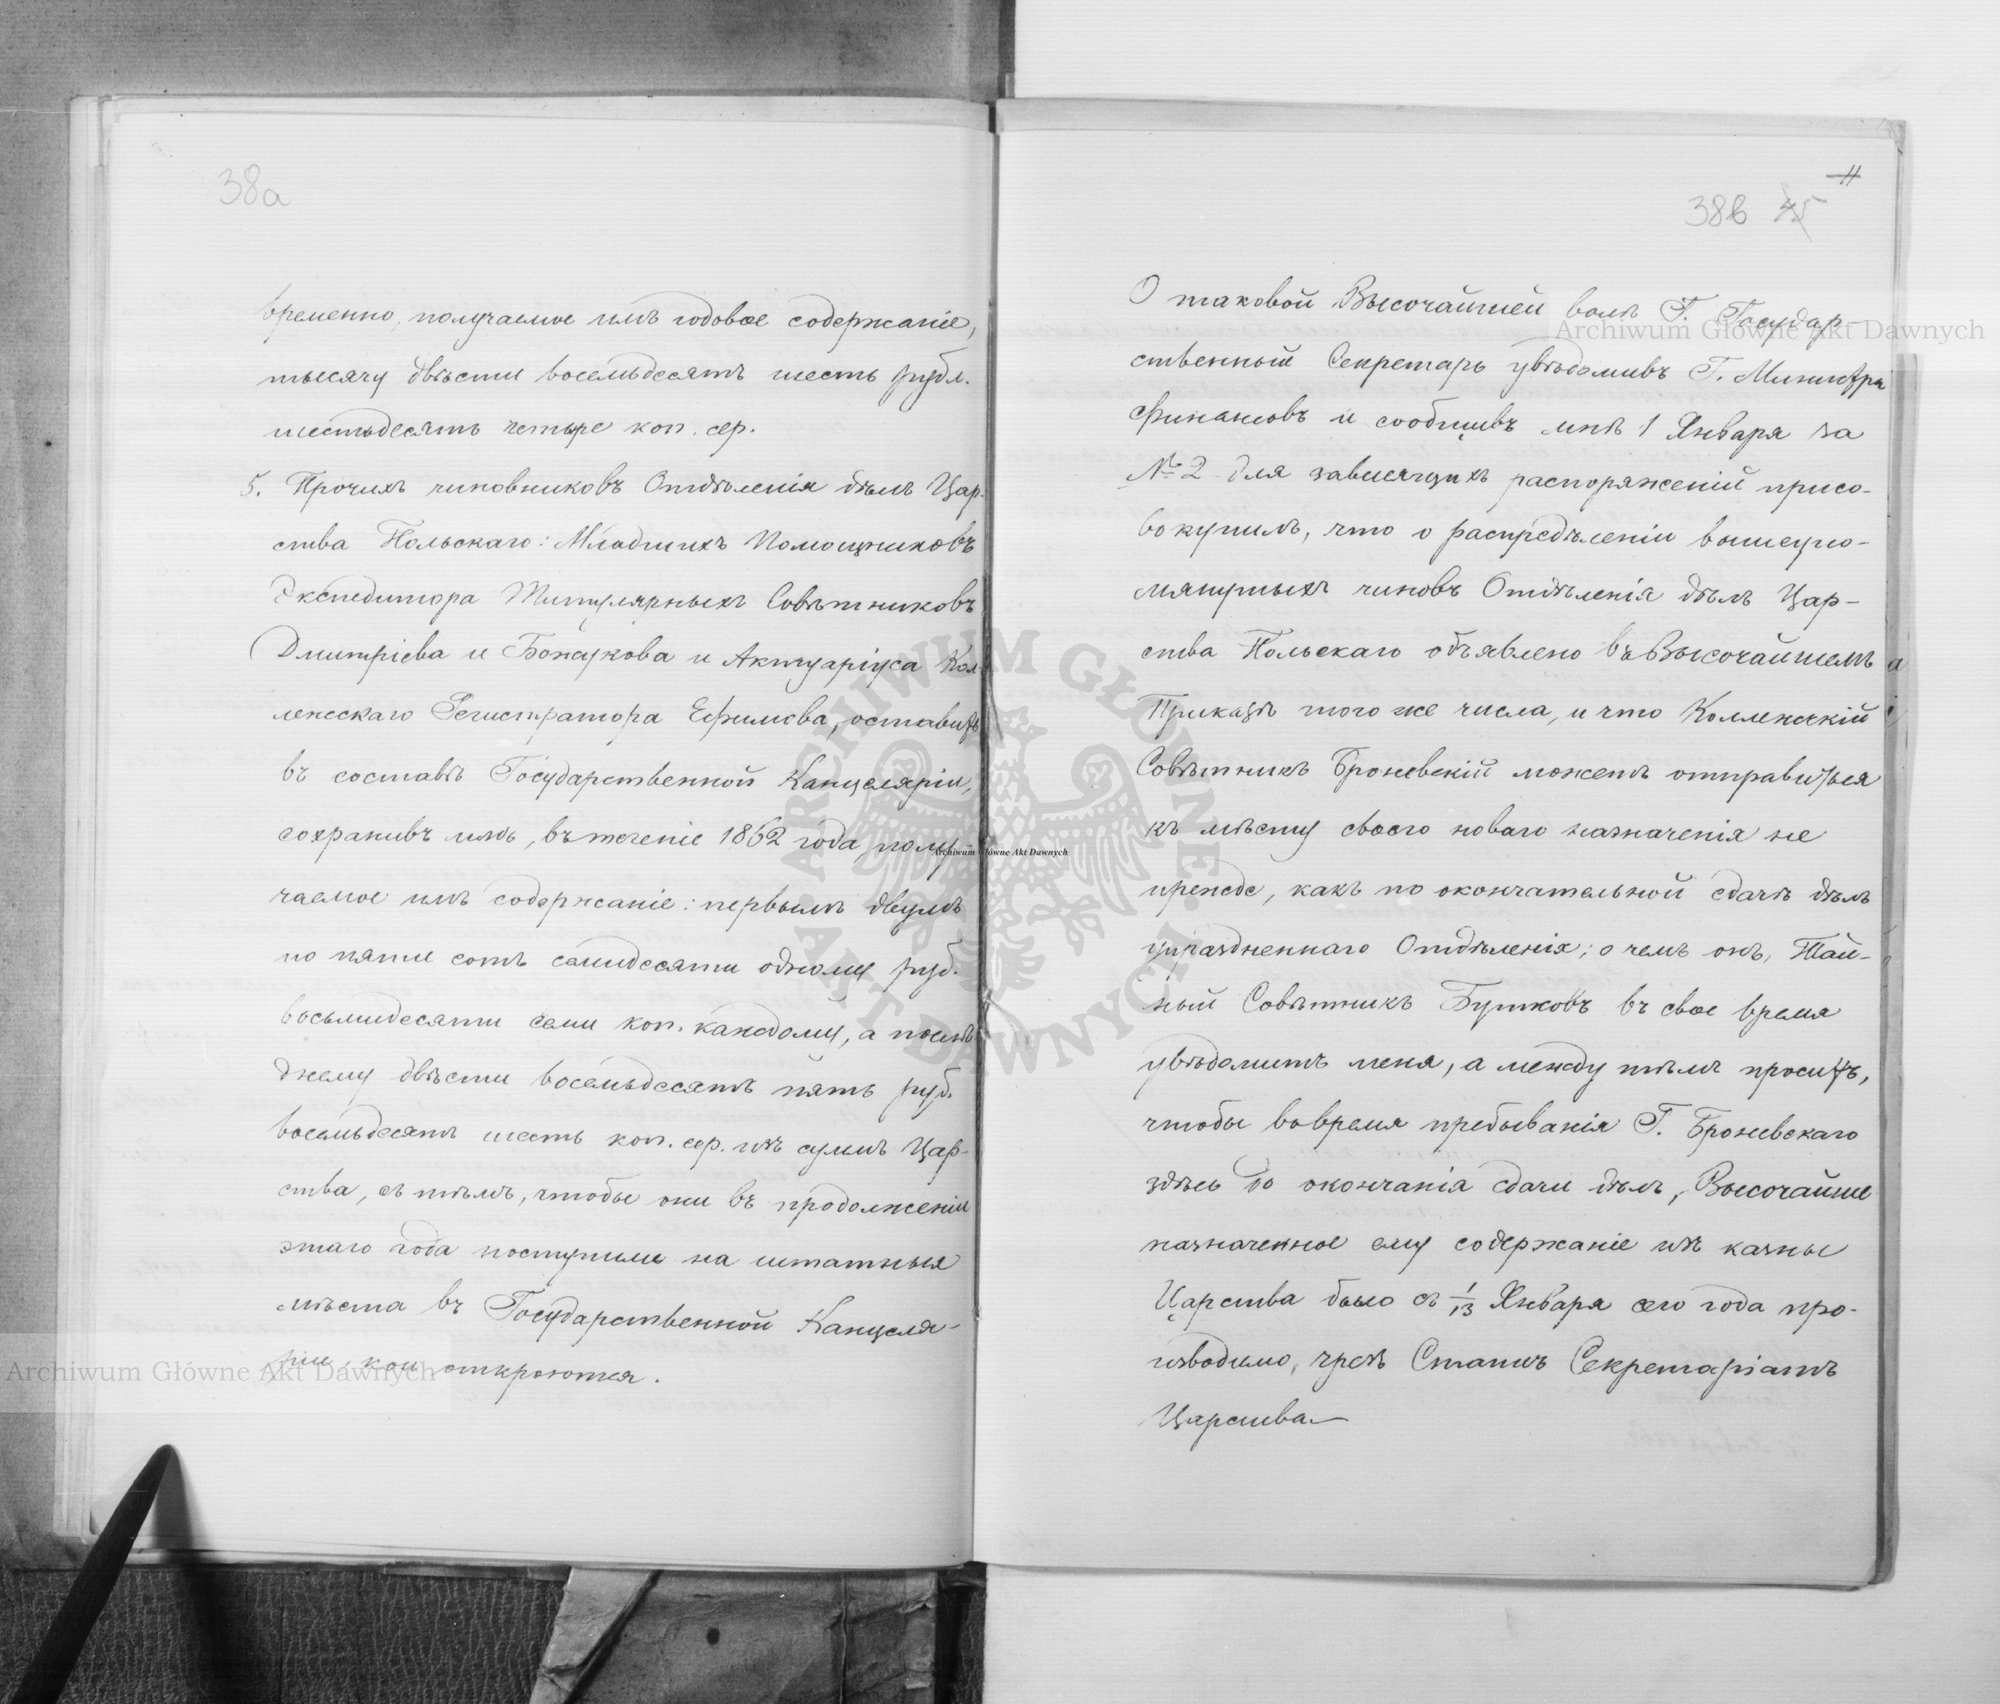 38а
временно, получаемое имъ годовое содержаніе,
тысячу двѣсти восемьдесятъ шесть рубл.
шестьдесятъ четыре коп. сер.
5. Прочихъ чиновниковъ Отдѣленія дѣлъ Цар-
ства Польскаго: Младшихъ Помощниковъ
Экспедитора Титулярныхъ Совѣтниковъ
Дмитріева и Божукова и Актуаріуса Кол-
лежскаго Регистратора Ефимова, оставить
въ составѣ Государственной Канцеляріи,
сохранивъ имъ, въ теченіе 1862 года, полу-
чаемое имъ содержаніе: первымъ двумъ
по пяти сотъ семидесяти одному руб.
восьмидесяти семи коп. каждому, а послѣ
днему двѣсти восемьдесятъ пять руб.
восемьдесятъ шесть коп. сер. изъ суммъ Цар-
ства, съ тѣмъ, чтобы они въ продолженіи
этаго года поступили на штатныя
мѣста въ Государственной Канцеля-
ріи, кои откроются.
11
38б 45
О таковой Высочайшей волѣ Г. Государ-
ственный Секретарь увѣдомивъ Г. Министра
Финансовъ и сообщивъ мнѣ 1 Января за
№ 2 для зависящихъ распоряженій присо-
вокупилъ, что о распредѣленіи вышеупо-
мянутыхъ чиновъ Отдѣленія дѣлъ Цар-
ства Польскаго объявлено въ Высочайшемъ
Приказѣ того же числа, и что Коллежскій
Совѣтникъ Броневскій можетъ отправиться
къ мѣсту своего новаго назначенія не
прежде, какъ по окончательной сдачѣ дѣлъ
упраздненнаго Отдѣленія; о чемъ онъ, Тай-
ный Совѣтникъ Бутковъ въ свое время
увѣдомитъ меня, а между тѣмъ проситъ,
чтобы во время пребыванія Г. Броневскаго
здѣсь до окончанія сдачи дѣлъ, Высочайше
назначенное ему содержаніе изъ казны
Царства было съ 1/13 Января сего года про-
изводимо, чрезъ Статсъ Секретаріатъ
Царства.
Archiwum Główne Akt Dawnych
Archiwum Główne Akt Dawnych
Archiwum Główne Akt Dawnych
ARCHIWUM GŁÓWNE AKT DAWNYCH